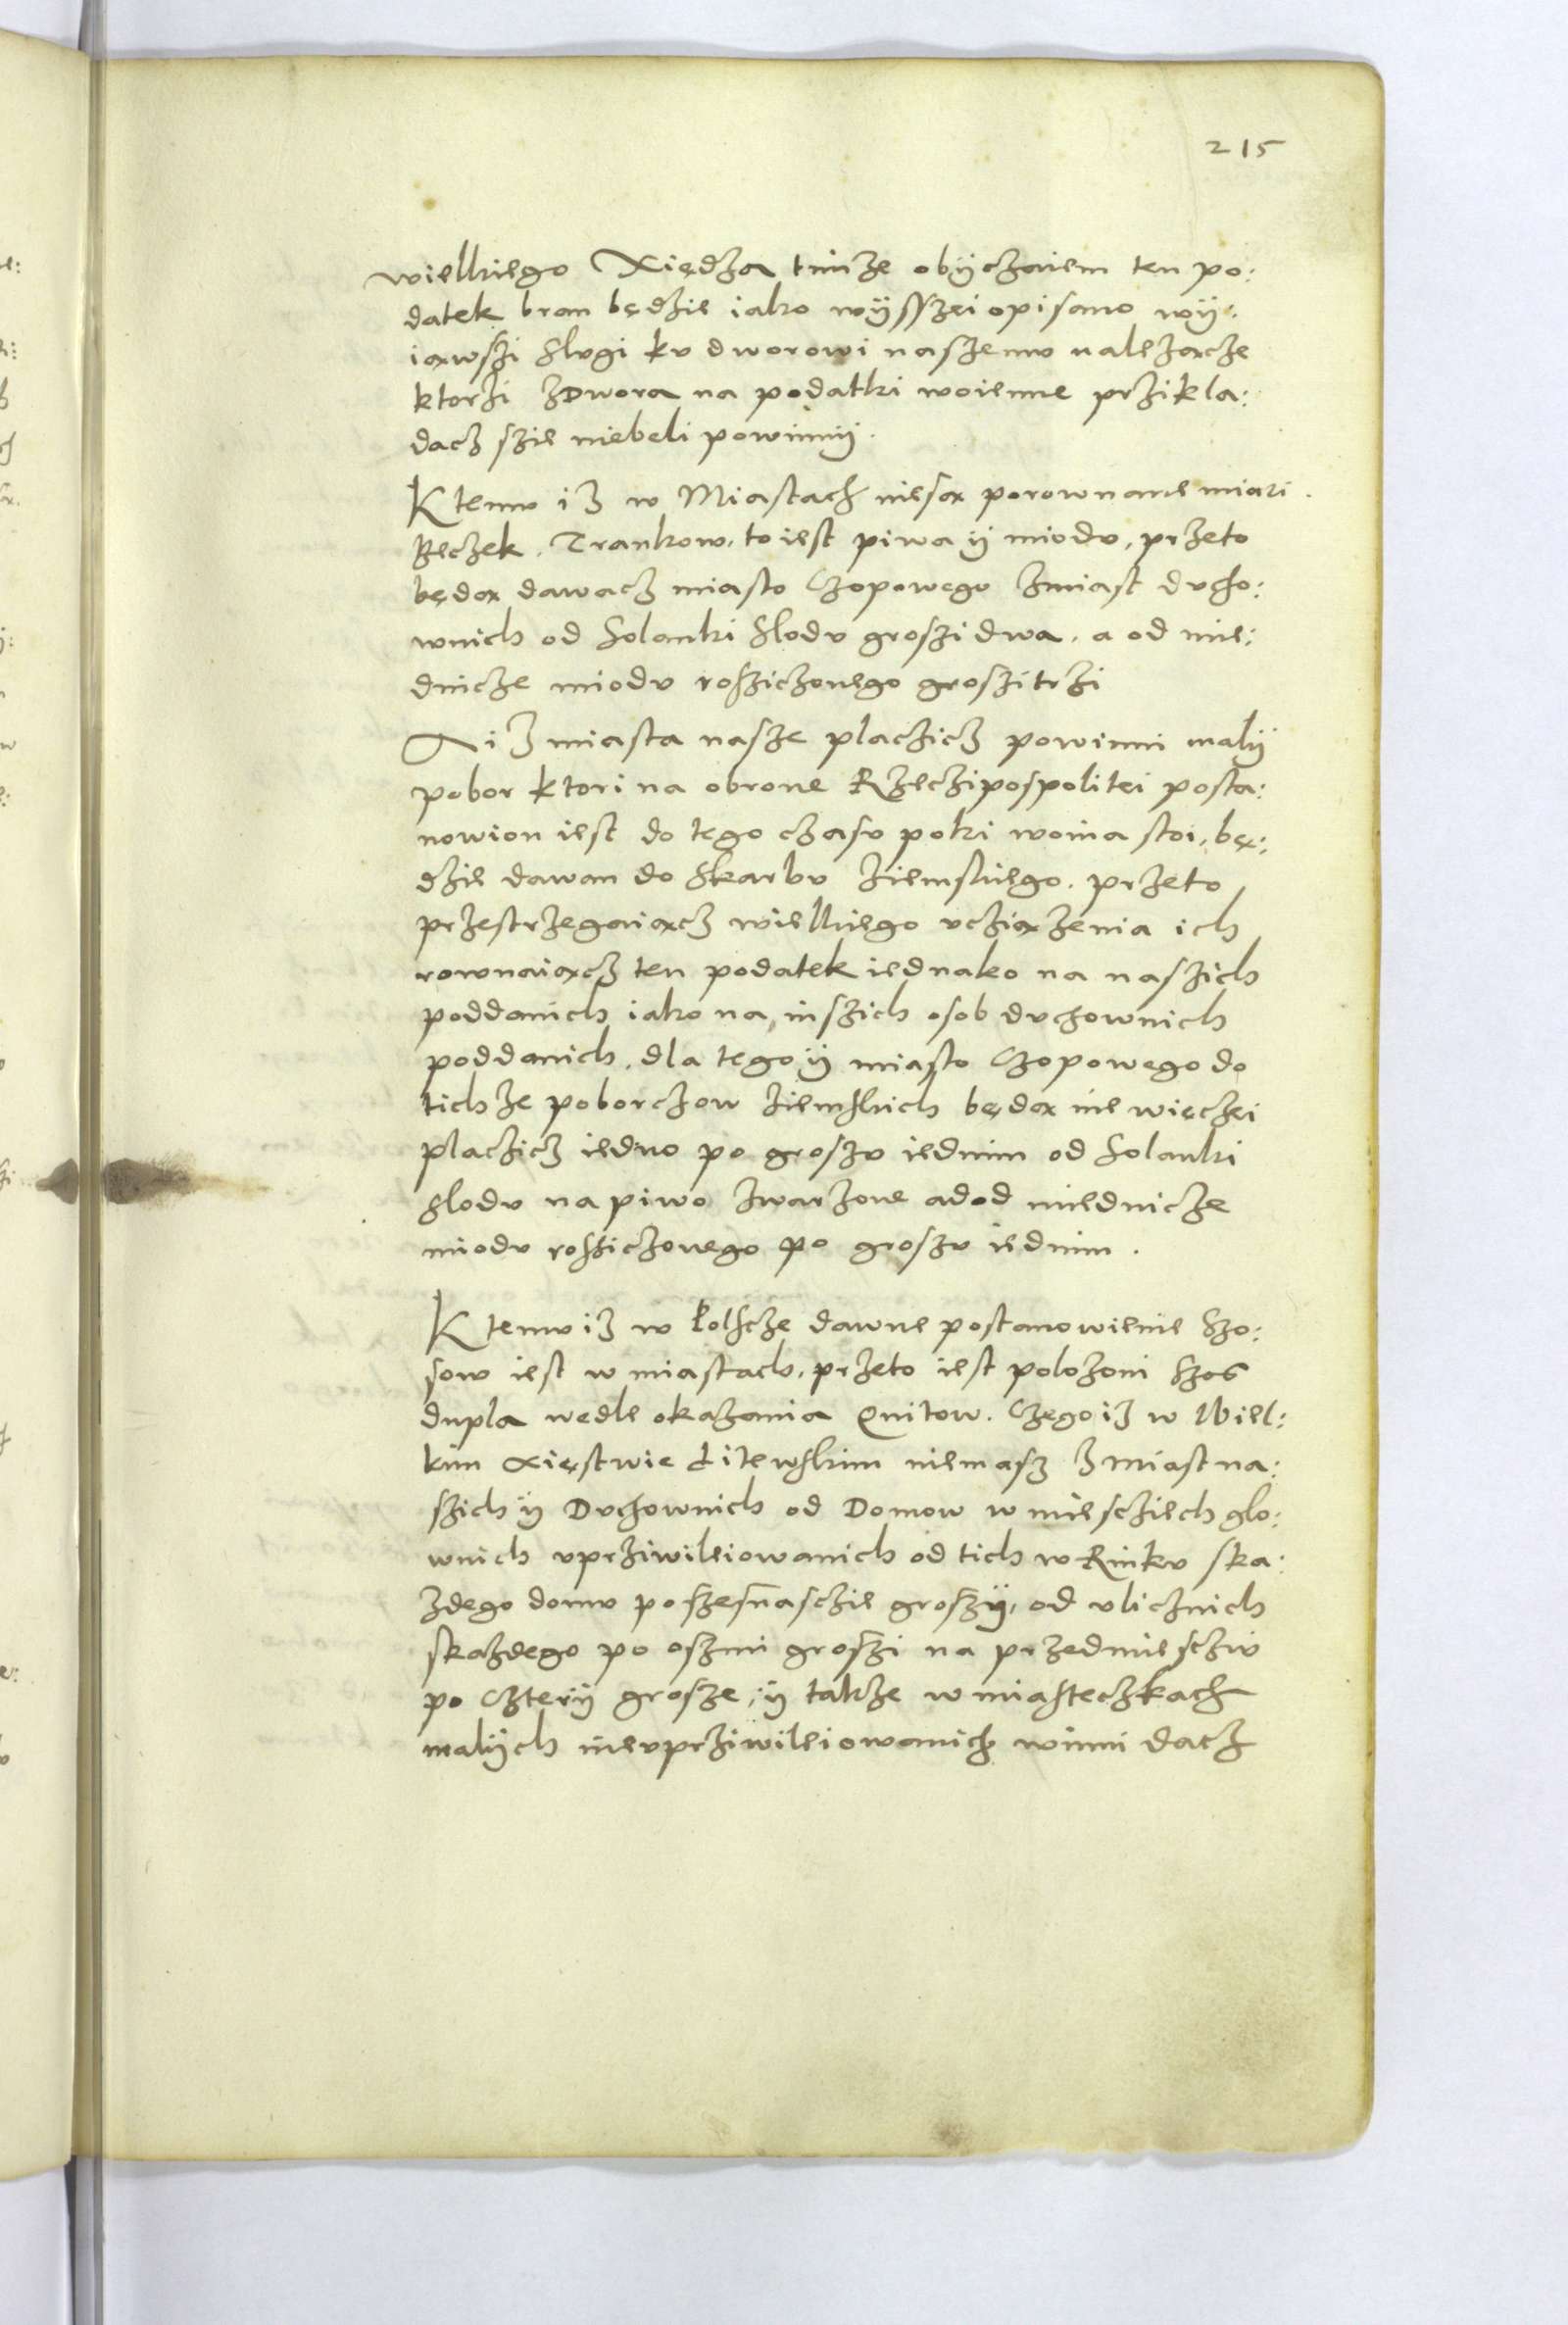 215
wielkiego Xiędza timze obÿczaiem ten po:
datek bran będzie iako wÿsszei opisano wÿ:
iąwszi slugi ku dworowi naszemu należącze
ktorzi zDwora na podatki woienne przikla:
dacz szie niebeli powinnÿ.
K temu iz w Miastach niesą porownane miari.
Beczek. Trankow. to iest piwa ÿ miodu, przeto
będą dawacz miasto Czopowego zmiast ducho:
wnich od Solanki slodu groszi dwa. a od mie:
dnicze miodu rosziczonego groszi trzi
A iz miasta nasze placzicz powinni malÿ
pobor ktori na obrone Rzeczipospolitei posta:
nowion iest do tego czasu poki woina stoi, bę:
dzie dawan do skarbu ziemskiego. przeto
przestrzegaiącz wielkiego ucziążenia ich
rownaiącz ten podatek iednako na naszich
poddanich iako na inszich osob duchownich
poddanich. dla tego ÿ miasto Czopowego do
tichze poborczow ziemskich będą nie więczei
placzicz iedno po groszu iednim od Solanki
slodu na piwo zwarzone a od miednicze
miodu rosziczonego po groszu iednim.
K temu iz w Polscze dawne postanowienie Szo:
sow iest w miastach. przeto iest polozoni Szos
dupla wedle okazania Quitow. Czego iz w Wiel:
kim Xięstwie Litewskim niemasz z miast na:
szich ÿ Duchownich od Domow w miesciech glo:
wnich uprziwileiowanich od tich w Rinku ska:
zdego domu po szesnascie groszÿ, od ulicznich
skazdego po oszmi groszi na przedmiesciu
po Czterÿ grosze, ÿ takze w miasteczkach
malÿch nieuprziwileiowanich winni dacz